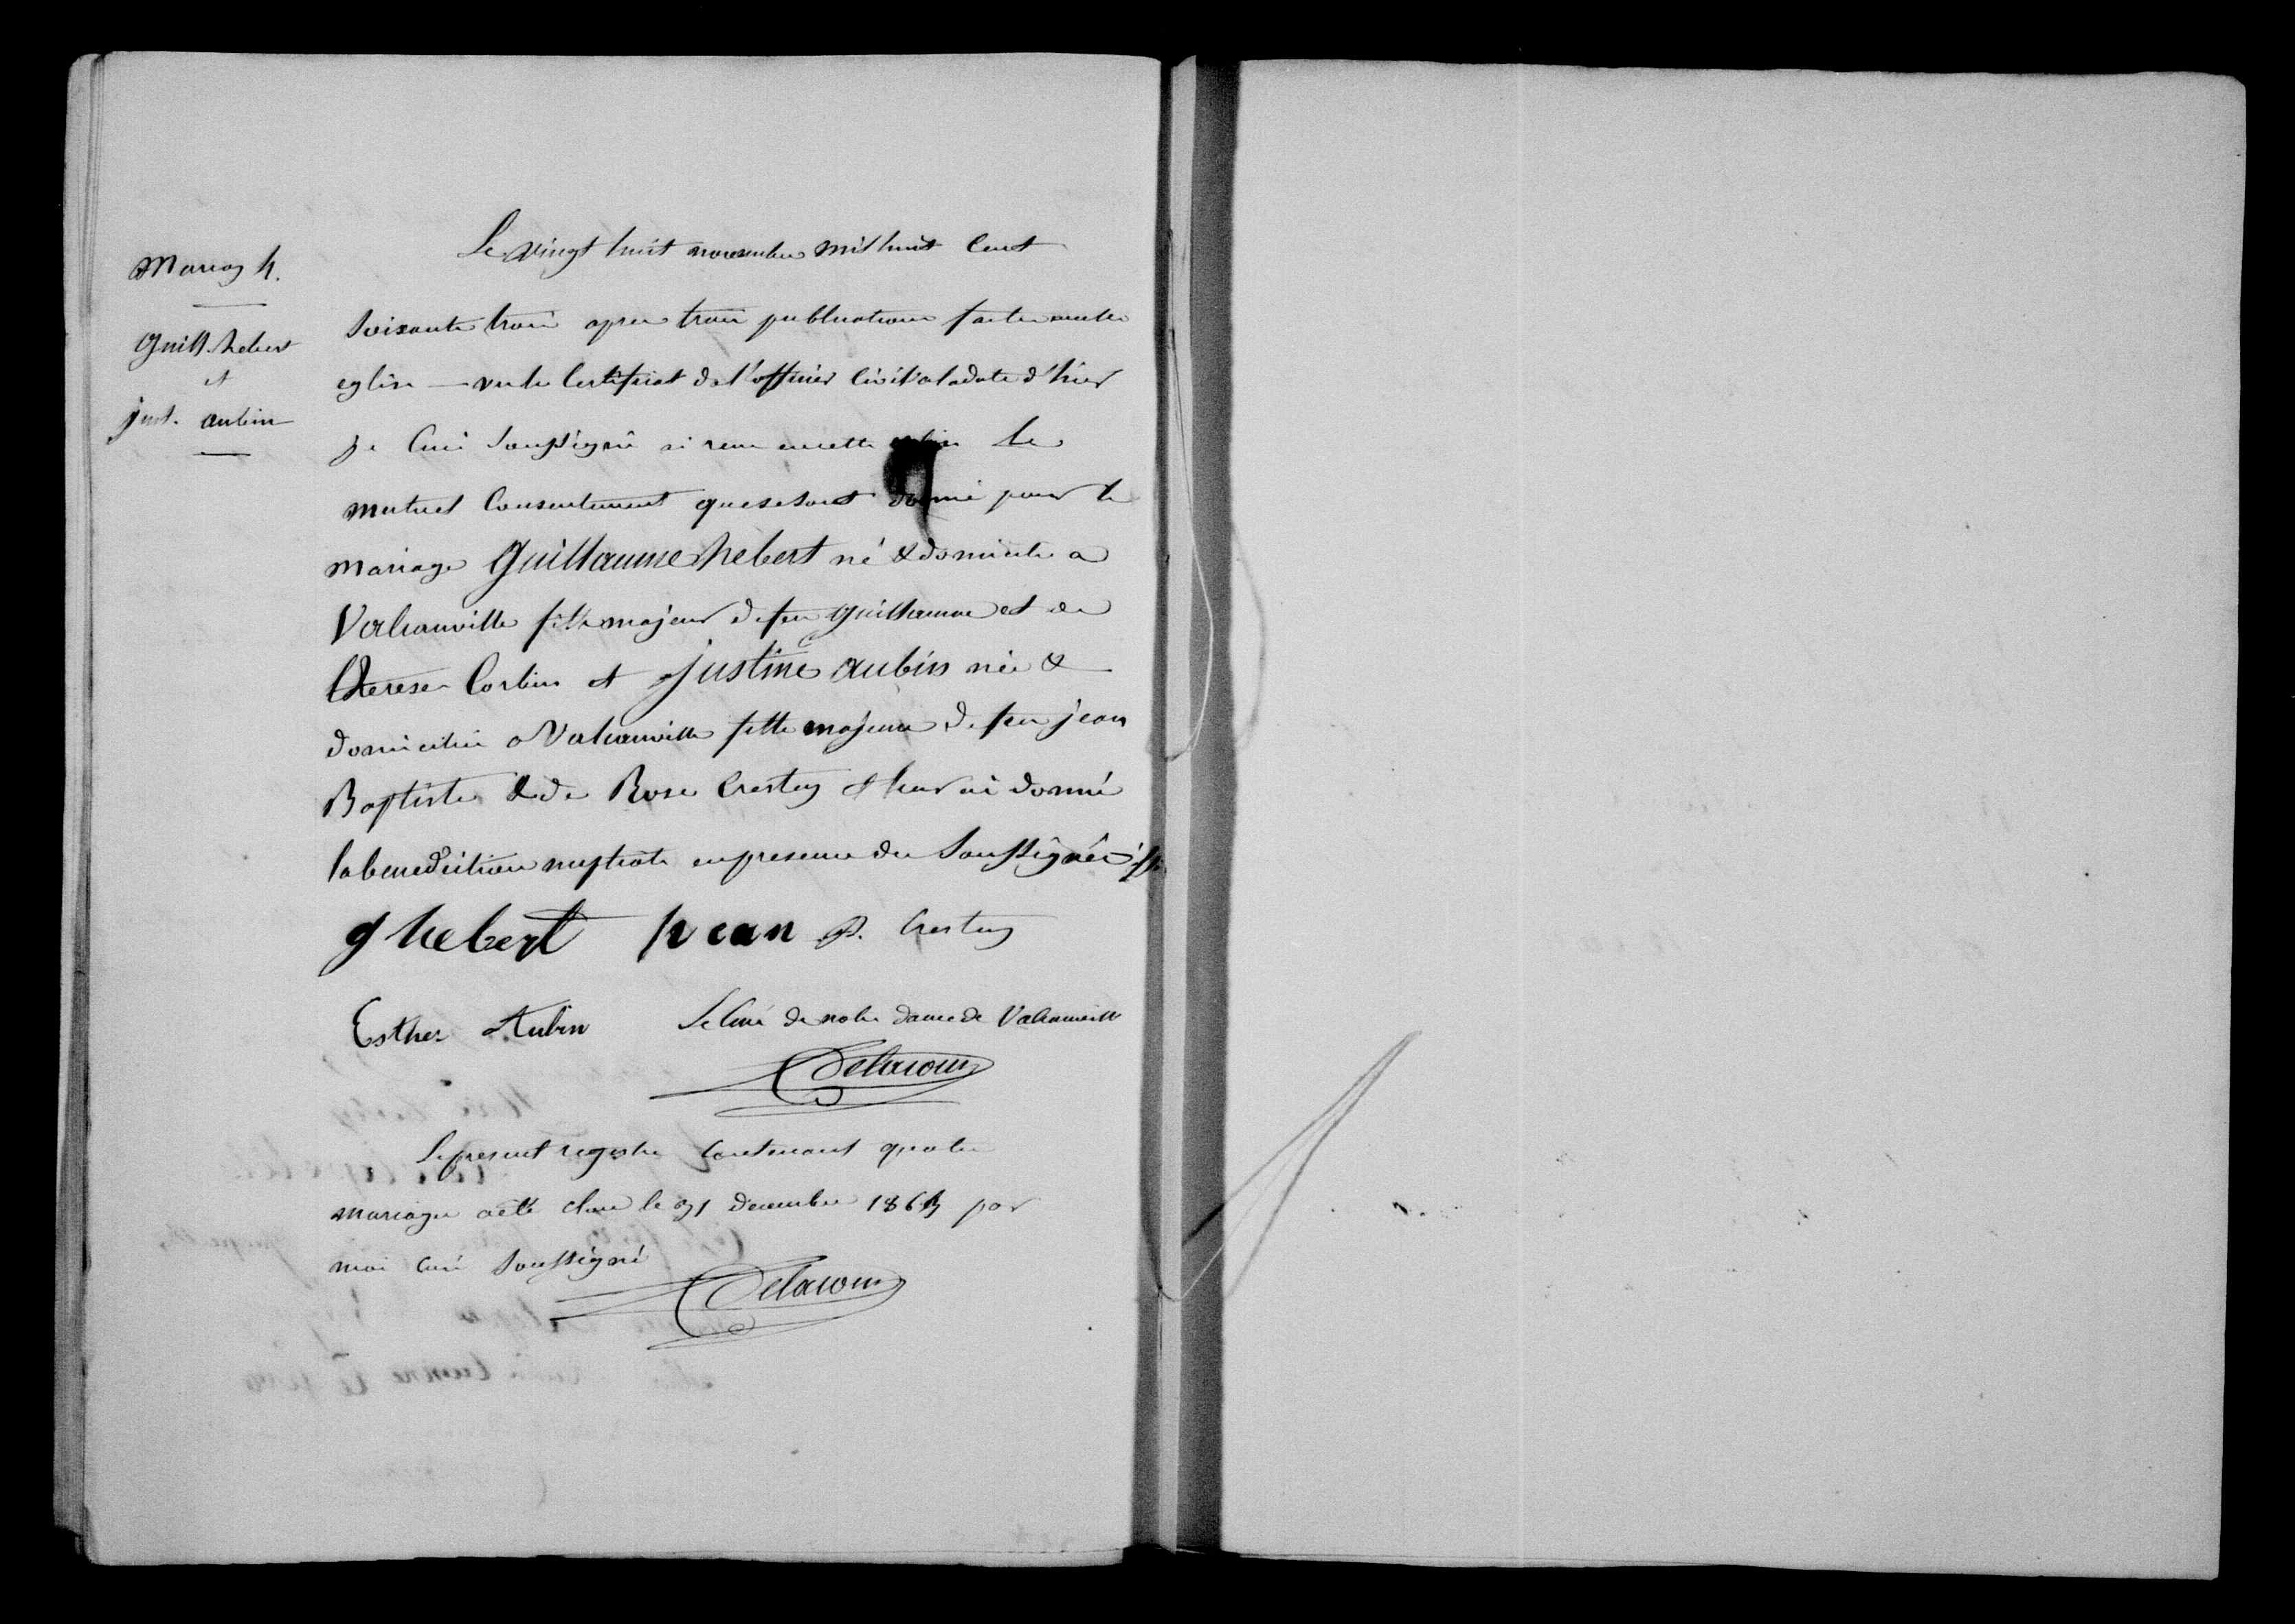 Mariag 4.
Guill. hebert
et
just. aubin
Le vingt huit novembre mil huit cent
soixante trois apres trois publications faites en cette
eglise — vu le certificat de l'officier civil a la date d'hier
je curé soussigné ai recu en cette eglise le
mutuel consentement que se sont donné pour le
mariage Guillaume hebert né & domicilie a
Valcanville fils majeur de feu guillaume et de
therese Corbin et justine aubin née &
domiciliée a Valcanville fille majeure de feu jean
Baptiste & de Rose Crestey & leur ai donné
la benediction nuptiale en presence des soussignés
g hebert pean P. Crestey
Esther Aubin Le Curé de notre dame de Valcanville
Delacour
Le present registre contenant quatre
mariages a été clos le 31 decembre 1863 par
moi curé soussigné
Delacour